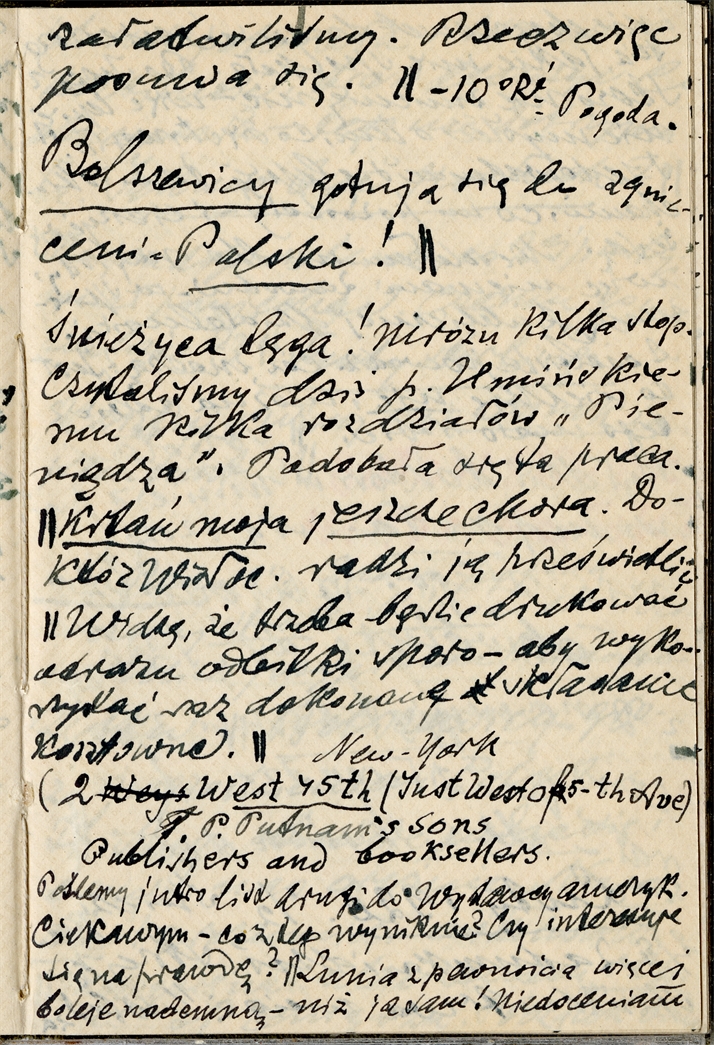 załatwiliśmy. Rzecz więc
posuwa się. || -10° Ré. Pogoda.
Bolszewicy gotują się do zgnie-
cenia Polski! ||
Śnieżyca tęga! mrozu kilka stop.
Czytaliśmy dziś p. Umińskie-
mu kilka rozdziałów „Pie-
niądza”. Podobała się ta praca.
|| Krtań moja jeszcze chora. Do-
któr Wisłoc. radzi ją prześwietlić
|| Widzę, że trzeba będzie drukować
odrazu odbitki sporo - aby wyko-
rzystać raz dokonane składanie
kosztowne. || New-York
(2 Ways West 45th (Just West of 5-th Ave)
P. Putnam's Sons
Publishers and booksellers.
Poślemy jutro list drugi do wydawcy ameryk.
Ciekawym - co z tego wyniknie? Czy interesuje
się naprawdę? || Lunia z pewnością więcej
boleje nademną - niż ja sam! Niedoceniam